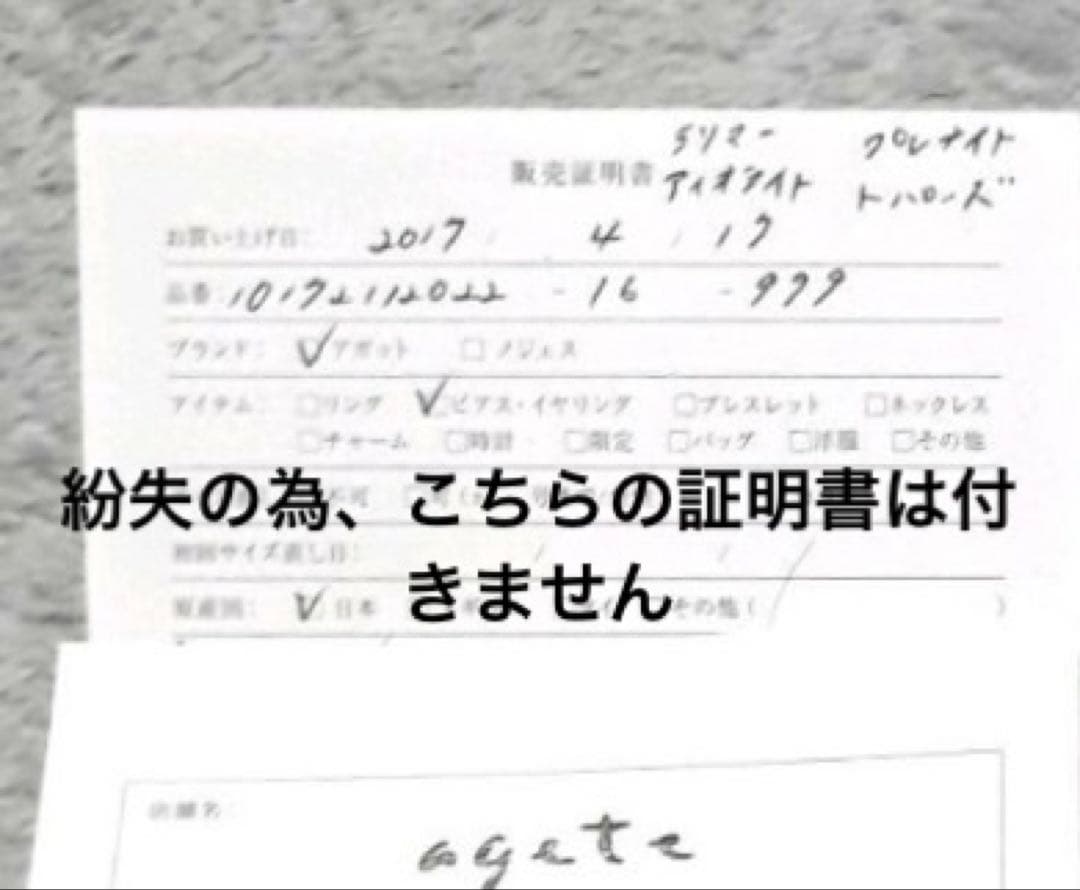 ラリマー プレナイト
販売証明書 アイオライト トハローズ
お買い上げ日: 2017 / 4 / 17
品番: 10172112022 - 16 - 999
ブランド: ✓アガット □ノジェス
アイテム: □リング ✓ピアス・イヤリング □ブレスレット □ネックレス
□チャーム □時計 □限定 □バッグ □洋服 □その他
紛失の為、こちらの証明書は付
初回サイズ直し日: / /
きません
原産国: ✓日本 その他 ( )
店舗名:
agete